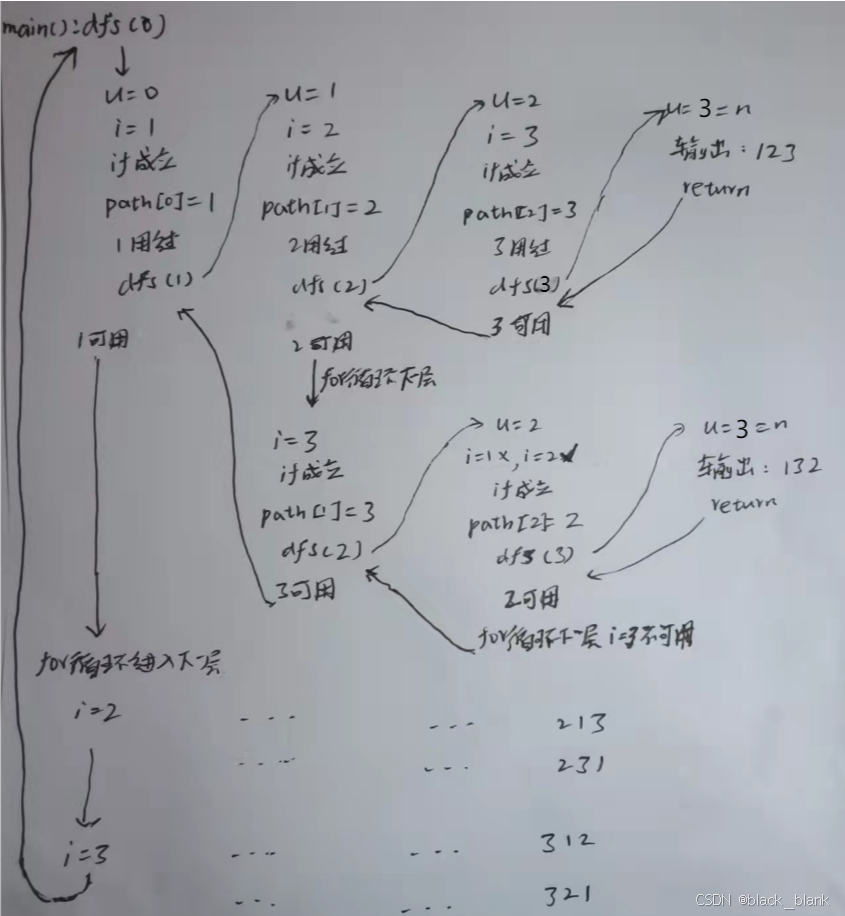 main():dfs(0)
u=0
i=1
if成立
path[0]=1
1用过
dfs(1)
1可用
for循环进入下一层
i=2
i=3
u=1
i=2
if成立
path[1]=2
2用过
dfs(2)
2可用
for循环下一层
i=3
if成立
path[1]=3
dfs(2)
3可用
u=2
i=3
if成立
path[2]=3
3用过
dfs(3)
3可用
u=3=n
输出:123
return
u=2
i=1×,i=2✓
if成立
path[2]=2
dfs(3)
2可用
for循环下一层 i=3不可用
u=3=n
输出:132
return
... ... 213
.... ... 231
... ... 312
... ... 321
CSDN @black_blank